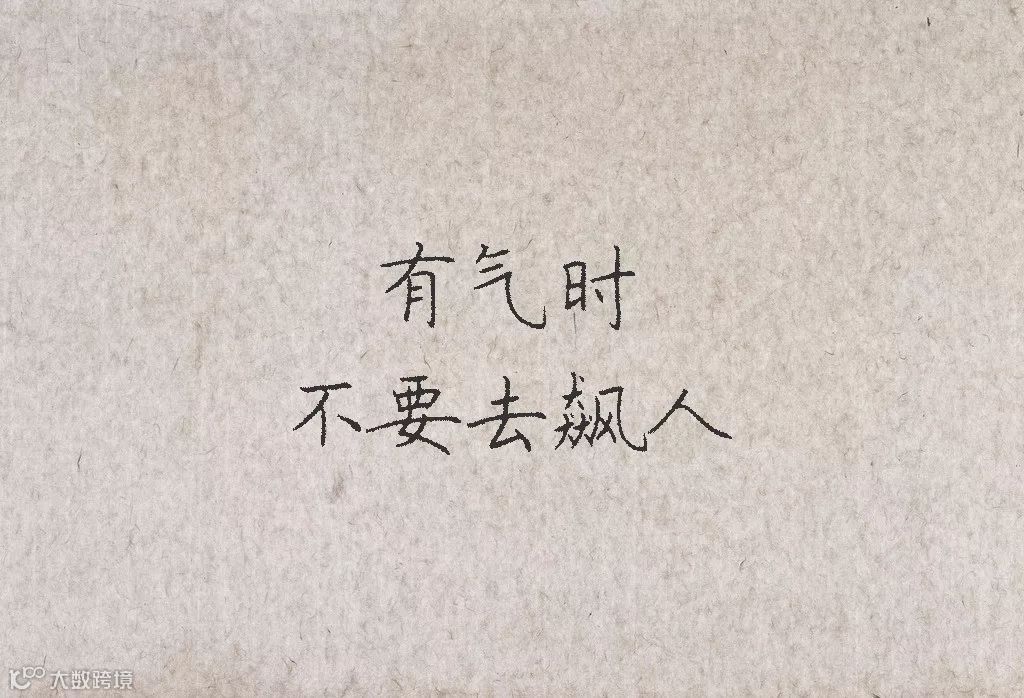 有气时
不要去飙人
大数跨境